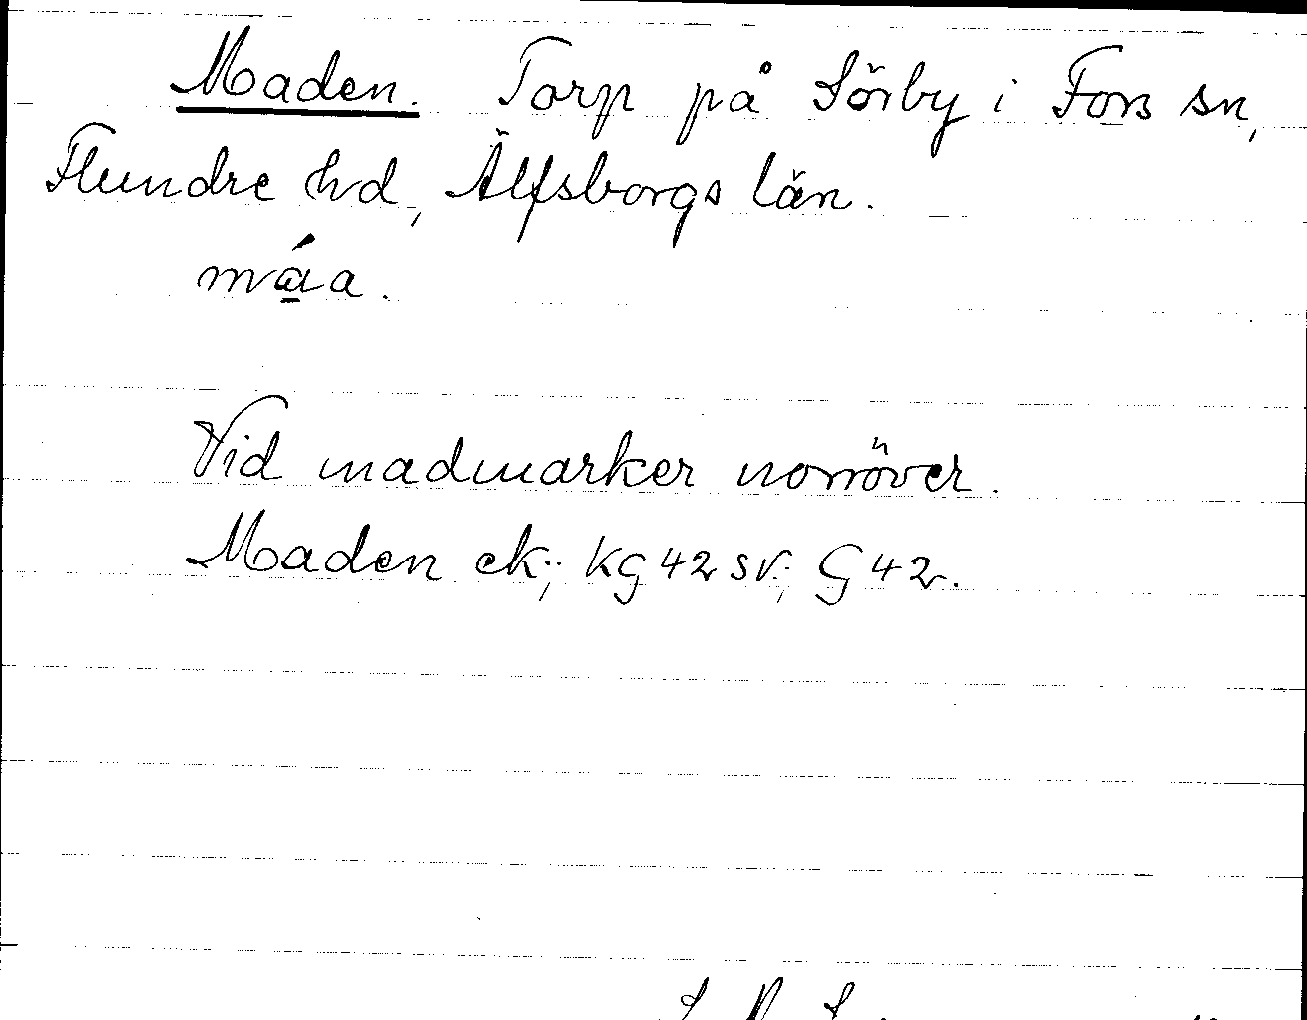 Maden. Torp på Sörby i Fors sn,
Flundre hd, Älfsborgs län.
má̱a.
Vid madmarker norröver.
Maden ek; KG 42 sv; G 42.